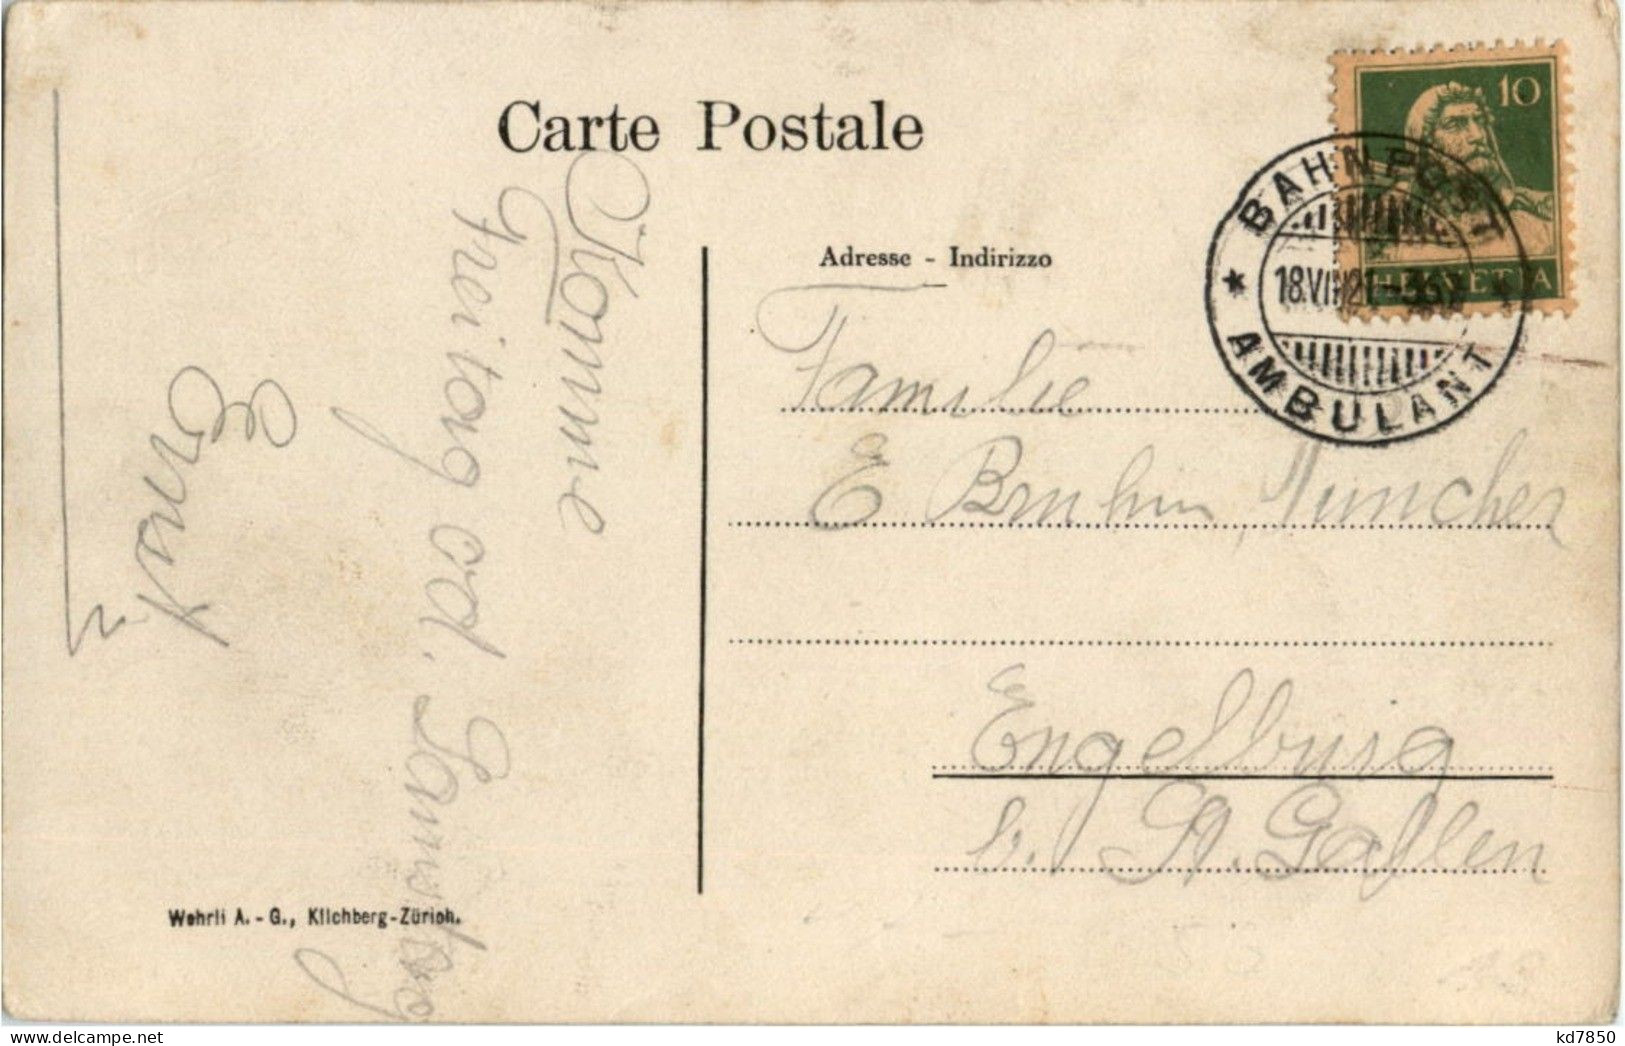 Carte Postale
Komme
Freitag od. Samstag
Ernst
Wehrli A.-G., Kilchberg-Zürich.
Adresse - Indirizzo
Familie
E Bruhin,
Engelburg
b. St. Gallen
10
HELVETIA
BAHNPOST
18.VIII21
AMBULANT
kd7850